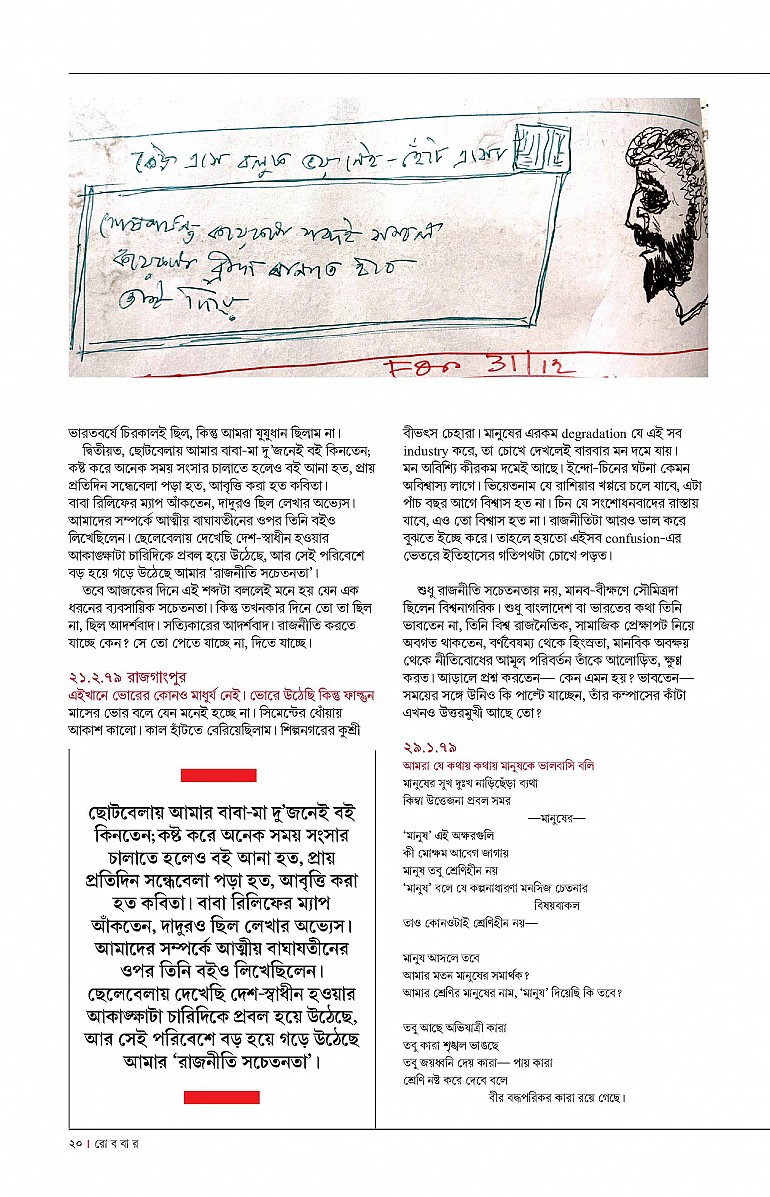 কেউ এসে বলুক ভয় নেই – হেঁটে এসো
FOR 31/12
ভারতবর্ষে চিরকালই ছিল, কিন্তু আমরা যুযুধান ছিলাম না।
দ্বিতীয়ত, ছোটবেলায় আমার বাবা-মা দু'জনেই বই কিনতেন;
কষ্ট করে অনেক সময় সংসার চালাতে হলেও বই আনা হত, প্রায়
প্রতিদিন সন্ধেবেলা পড়া হত, আবৃত্তি করা হত কবিতা।
বাবা রিলিফের ম্যাপ আঁকতেন, দাদুরও ছিল লেখার অভ্যেস।
আমাদের সম্পর্কে আত্মীয় বাঘাযতীনের ওপর তিনি বইও
লিখেছিলেন। ছেলেবেলায় দেখেছি দেশ-স্বাধীন হওয়ার
আকাঙ্ক্ষাটা চারিদিকে প্রবল হয়ে উঠেছে, আর সেই পরিবেশে
বড় হয়ে গড়ে উঠেছে আমার 'রাজনীতি সচেতনতা'।
তবে আজকের দিনে এই শব্দটা বললেই মনে হয় যেন এক
ধরনের ব্যবসায়িক সচেতনতা। কিন্তু তখনকার দিনে তো তা ছিল
না, ছিল আদর্শবাদ। সত্যিকারের আদর্শবাদ। রাজনীতি করতে
যাচ্ছে কেন? সে তো পেতে যাচ্ছে না, দিতে যাচ্ছে।
২১.২.৭৯ রাজগাংপুর
এইখানে ভোরের কোনও মাধুর্য নেই। ভোরে উঠেছি কিন্তু ফাল্গুন
মাসের ভোর বলে যেন মনেই হচ্ছে না। সিমেন্টের ধোঁয়ায়
আকাশ কালো। কাল হাঁটতে বেরিয়েছিলাম। শিল্পনগরের কুশ্রী
ছোটবেলায় আমার বাবা-মা দু'জনেই বই
কিনতেন; কষ্ট করে অনেক সময় সংসার
চালাতে হলেও বই আনা হত, প্রায়
প্রতিদিন সন্ধেবেলা পড়া হত, আবৃত্তি করা
হত কবিতা। বাবা রিলিফের ম্যাপ
আঁকতেন, দাদুরও ছিল লেখার অভ্যেস।
আমাদের সম্পর্কে আত্মীয় বাঘাযতীনের
ওপর তিনি বইও লিখেছিলেন।
ছেলেবেলায় দেখেছি দেশ-স্বাধীন হওয়ার
আকাঙ্ক্ষাটা চারিদিকে প্রবল হয়ে উঠেছে,
আর সেই পরিবেশে বড় হয়ে গড়ে উঠেছে
আমার 'রাজনীতি সচেতনতা'।
বীভৎস চেহারা। মানুষের এরকম degradation যে এই সব
industry করে, তা চোখে দেখলেই বারবার মন দমে যায়।
মন অবিশ্যি কীরকম দমেই আছে। ইন্দো-চিনের ঘটনা কেমন
অবিশ্বাস্য লাগে। ভিয়েতনাম যে রাশিয়ার খপ্পরে চলে যাবে, এটা
পাঁচ বছর আগে বিশ্বাস হত না। চিন যে সংশোধনবাদের রাস্তায়
যাবে, এও তো বিশ্বাস হত না। রাজনীতিটা আরও ভাল করে
বুঝতে ইচ্ছে করে। তাহলে হয়তো এইসব confusion-এর
ভেতরে ইতিহাসের গতিপথটা চোখে পড়ত।
শুধু রাজনীতি সচেতনতায় নয়, মানব-বীক্ষণে সৌমিত্রদা
ছিলেন বিশ্বনাগরিক। শুধু বাংলাদেশ বা ভারতের কথা তিনি
ভাবতেন না, তিনি বিশ্ব রাজনৈতিক, সামাজিক প্রেক্ষাপট নিয়ে
অবগত থাকতেন, বর্ণবৈষম্য থেকে হিংস্রতা, মানবিক অবক্ষয়
থেকে নীতিবোধের আমূল পরিবর্তন তাঁকে আলোড়িত, ক্ষুণ্ণ
করত। আড়ালে প্রশ্ন করতেন— কেন এমন হয়? ভাবতেন—
সময়ের সঙ্গে উনিও কি পাল্টে যাচ্ছেন, তাঁর কম্পাসের কাঁটা
এখনও উত্তরমুখী আছে তো?
২৯.১.৭৯
আমরা যে কথায় কথায় মানুষকে ভালবাসি বলি
মানুষের সুখ দুঃখ নাড়িছেঁড়া ব্যথা
কিম্বা উত্তেজনা প্রবল সমর
—মানুষের—
'মানুষ' এই অক্ষরগুলি
কী মোক্ষম আবেগ জাগায়
মানুষ তবু শ্রেণিহীন নয়
'মানুষ' বলে যে কল্পনাধারণা মনসিজ চেতনার
বিষয়বাকল
তাও কোনওটাই শ্রেণিহীন নয়—
মানুষ আসলে তবে
আমার মতন মানুষের সমার্থক?
আমার শ্রেণির মানুষের নাম, 'মানুষ' দিয়েছি কি তবে?
তবু আছে অভিযাত্রী কারা
তবু কারা শৃঙ্খল ভাঙছে
তবু জয়ধ্বনি দেয় কারা— পায় কারা
শ্রেণি নষ্ট করে দেবে বলে
বীর বদ্ধপরিকর কারা রয়ে গেছে।
২০ । রো ব বা র